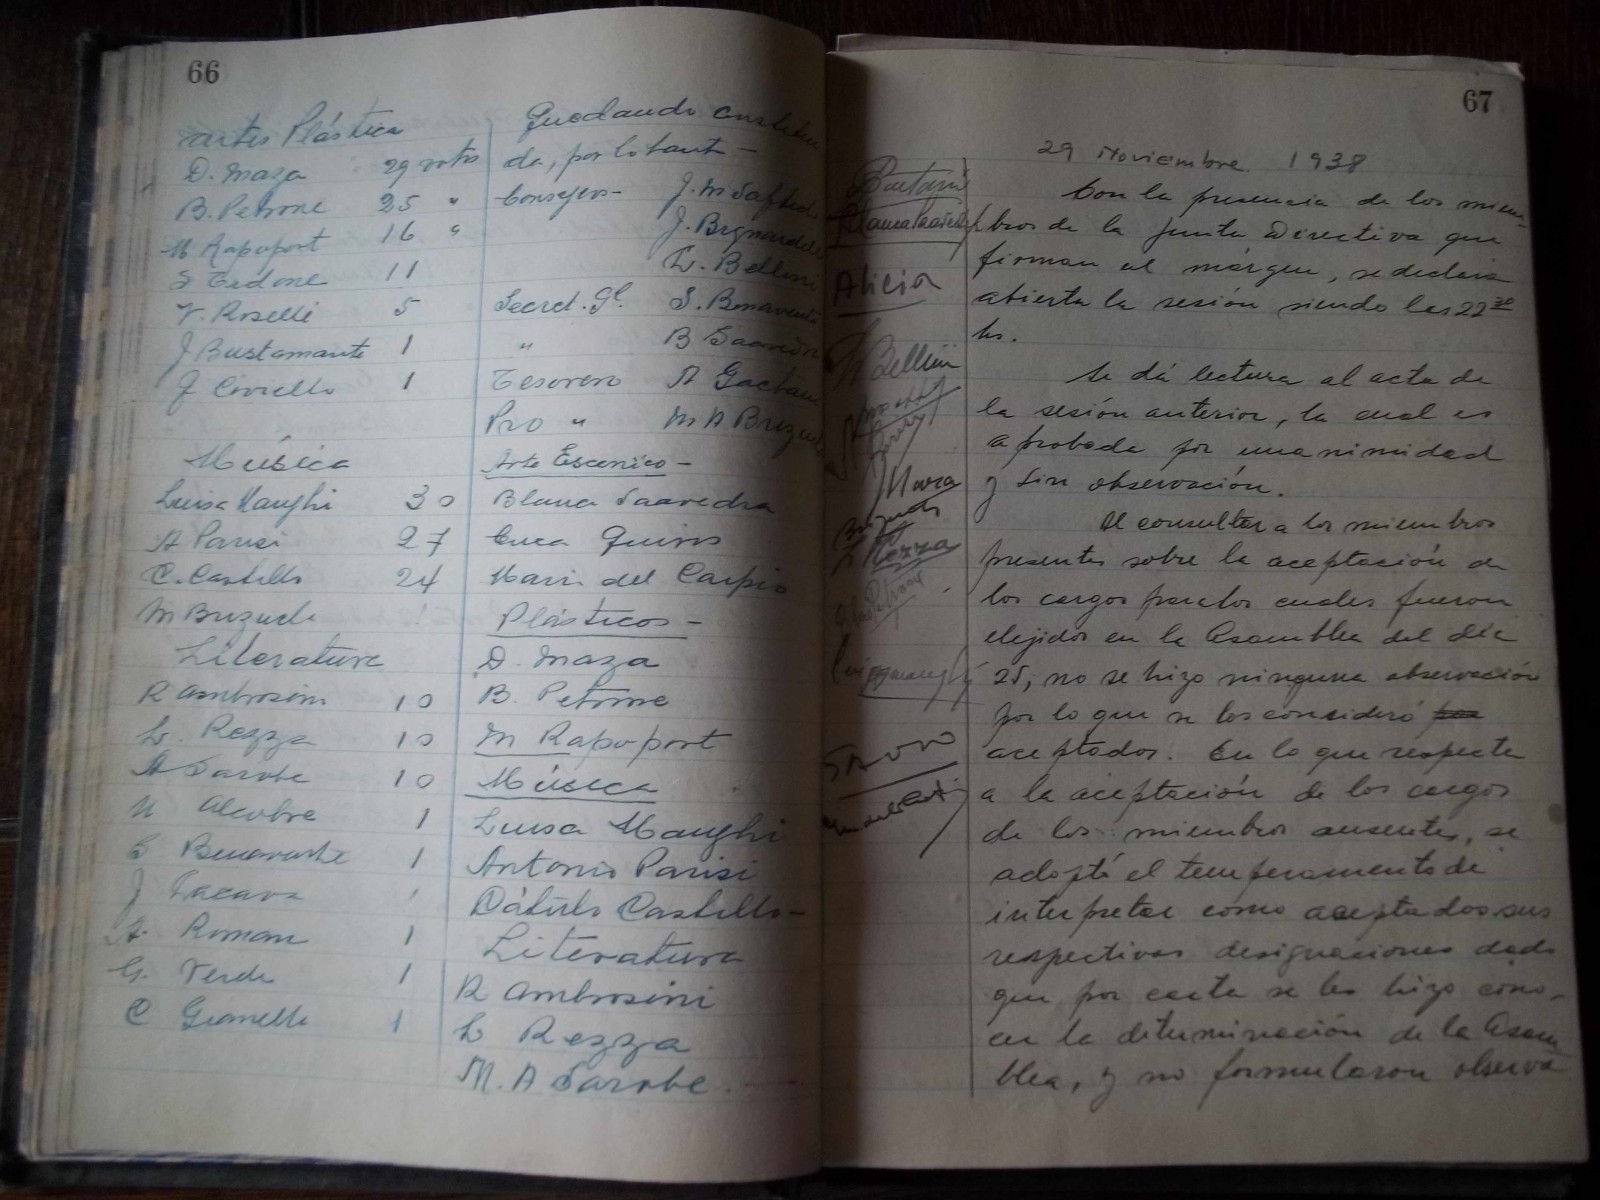 66
Artes Plástica
D. Maza 29 votos
B. Petrone 25 "
M Rapoport 16 "
S Tedone 11
V. Roselli 5
J Bustamante 1
J Cirrello 1
Música
Luisa Maughi 30
A Parisi 27
C. Castillo 24
M Brizuela
Literatura
R Ambrosini 10
L. Rezza 10
A Sarobe 10
N Alcobre 1
S Benavente 1
J Lacava 1
A. Roman 1
G. Verde 1
C Gianello 1
Quedando constitui
da, por lo tanto -
Consejero - J. M
J. Bignardelli
L. Bellini
Secret. Gl. S. Benavente
" B Saavedra
Tesorero A Gaetani
Pro " M A Brizuela
Arte Escenico -
Blanca Saavedra
Cuca Quiros
Maria del Carpio
Plásticos -
D. Maza
B. Petrone
M Rapoport
Música
Luisa Maughi
Antonio Parisi
Cátulo Castillo -
Literatura
R Ambrosini
L Rezza
M. A Sarobe. -
67
29 Noviembre 1938
Con la presencia de los miem-
bros de la Junta Directiva que
firman al márgen, se declara
abierta la sesión siendo las 22 30
hs.
Se dá lectura al acta de
la sesión anterior, la cual es
aprobada por unanimidad
y sin observación.
Al consultar a los miembros
presentes sobre la aceptación de
los cargos para los cuales fueron
elejidos en la Asamblea del día
25, no se hizo ninguna observación
por lo que se los consideró por
aceptados. En lo que respecta
a la aceptación de los cargos
de los miembros ausentes, se
adoptó el temperamento de
interpretar como aceptados sus
respectivas designaciones dado
que por carta se les hizo cono-
cer la determinación de la Asam
blea, y no formularon observa
Gaetani
Blanca Saavedra
Alicia
Bellini
Maza
Brizuela
L Rezza
Petrone
Luisa Maughi